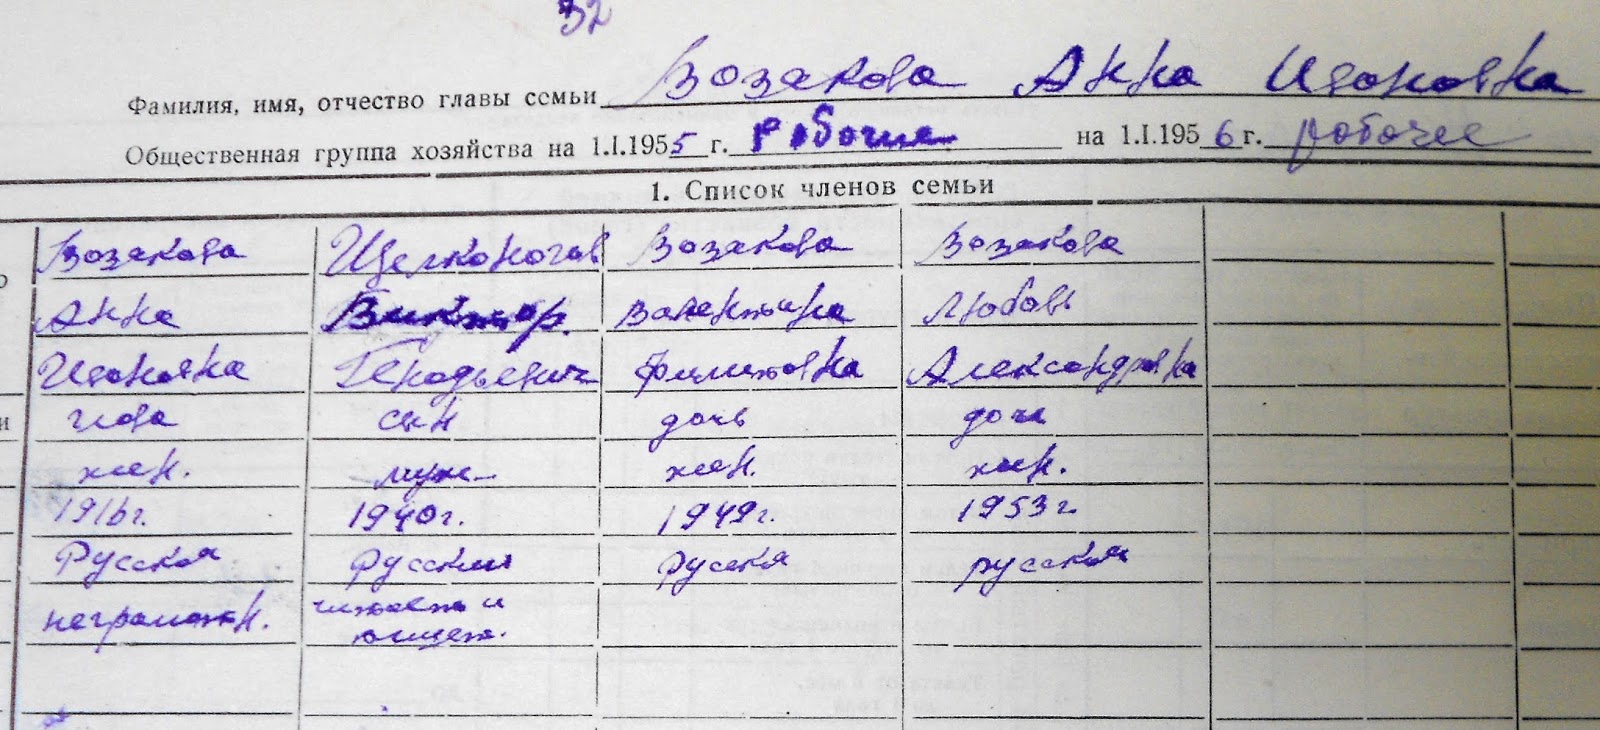 32
Фамилия, имя, отчество главы семьи Возакова Анна Ивановна
Общественная группа хозяйства на 1.I.1955 г. рабочие на 1.I.1956 г. рабочее
1. Список членов семьи
Возакова Щелконогов Возакова Возакова
Анна Виктор. Валентина Любовь
Ивановна Генадьевич Филиповна Александровна
глава сын дочь дочь
жен. муж. жен. жен.
1916г. 1940г. 1949г. 1953г.
Русская русский русская русская
неграмотн. читает и
пишет.